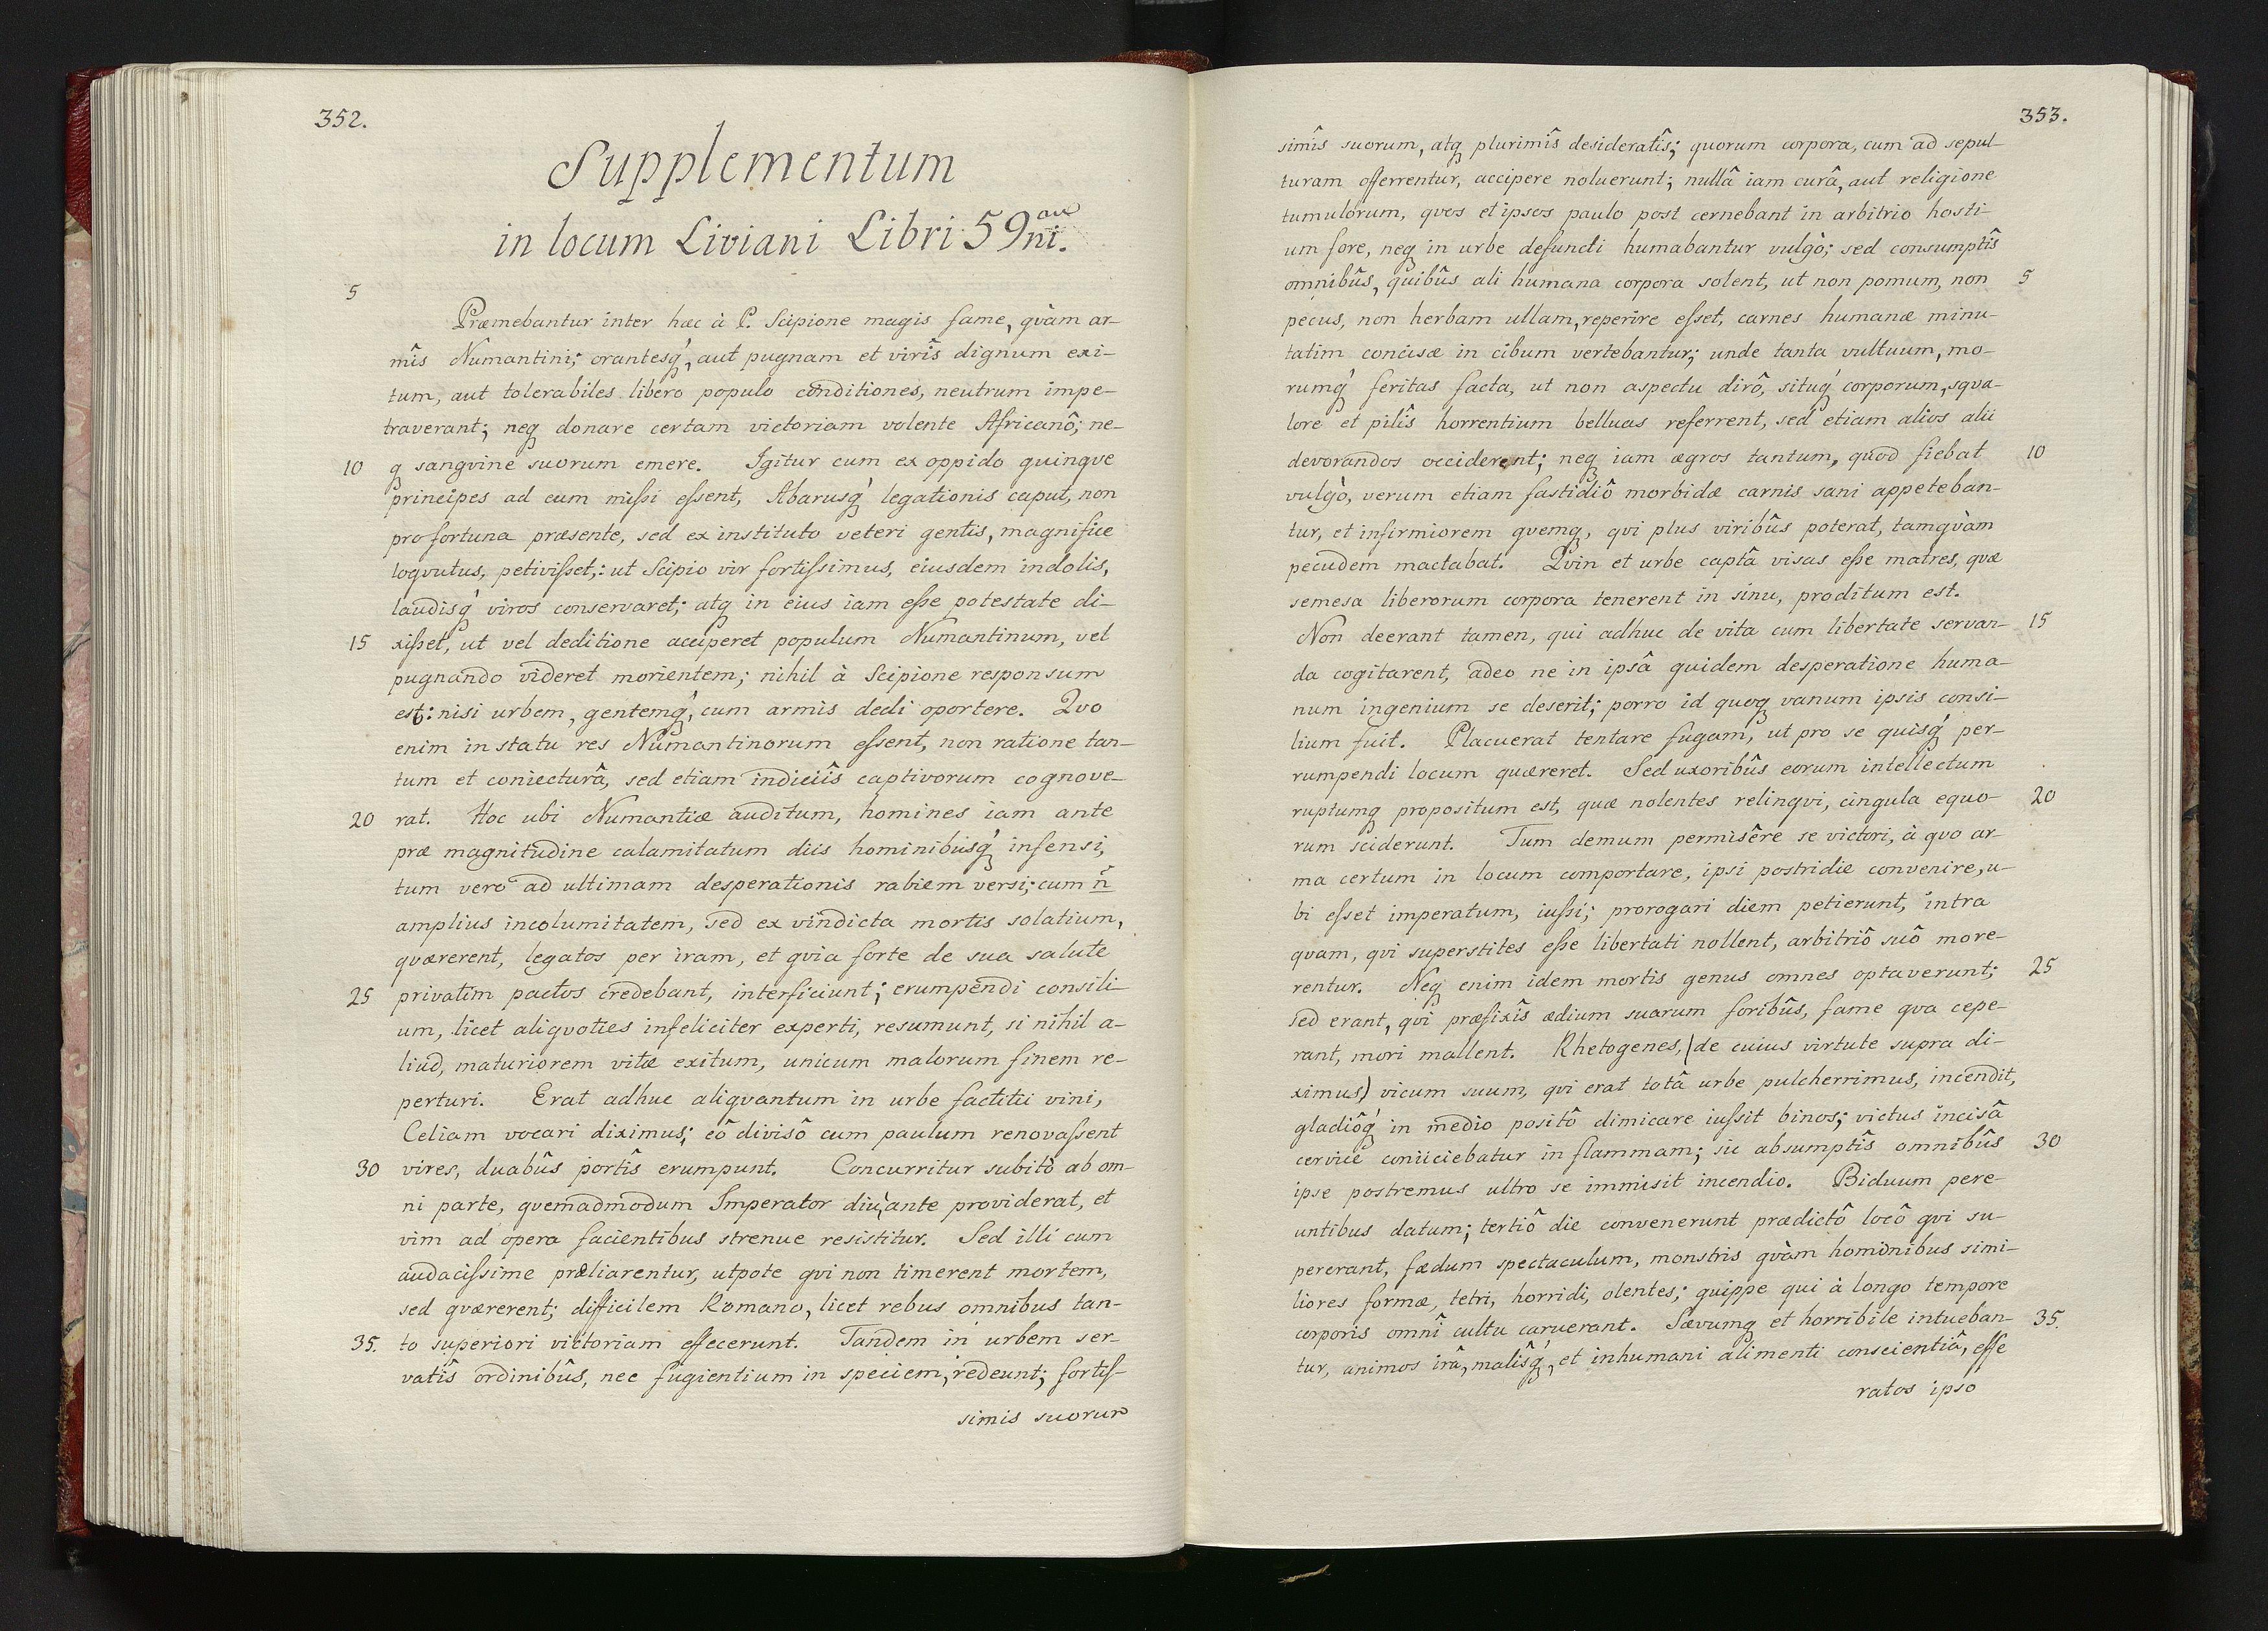 352.
Supplementum
in locum Liviani Libri 59ni.
5
Præmebantur inter hæc à P. Scipione magis fame, qvàm ar-
mîs Numantini; orantesq́, aut pugnam et virîs dignum exi-
tum, aut tolerabiles libero populo conditiones, neutrum impe-
traverant; neq donare certam victoriam volente Africanô; ne-
10 q sangvine suorum emere. Igitur cum ex oppido quinqve
principes ad eum mißi eßent, Abarusq́ legationis caput, non
pro fortuna præsente, sed ex instituto veteri gentis, magnifice
loqvutus, petivißet,: ut Scipio vir fortißimus, eiusdem indolis,
laudisq́ viros conservaret; atq in eius iam eße potestate di-
15 xißet, ut vel deditione acciperet populum Numantinum, vel
pugnando videret morientem; nihil à Scipione responsum
est: nisi urbem, gentemq́, cum armis dedi oportere. Qvo
enim in statu res Numantinorum eßent, non ratione tan-
tum et coniecturâ, sed etiam indiciîs captivorum cognove-
20 rat. Hoc ubi Numantiæ auditum, homines iam ante
præ magnitudine calamitatum diis hominibusq́ infensi,
tum vero ad ultimam desperationis rabiem versi; cum n̄
amplius incolumitatem, sed ex vindicta mortis solatium,
qværerent, legatos per iram, et qvia forte de sua salute
25 privatim pactos credebant, interficiunt; erumpendi consili-
um, licet aliqvoties infeliciter experti, resumunt, si nihil a-
liud, maturiorem vitæ exitum, unicum malorum finem re-
perturi. Erat adhuc aliqvantum in urbe factitii vini,
Celiam vocari diximus; eô divisô cum paulum renovaßent
30 vires, duabûs portîs erumpunt. Concurritur subitò ab om-
ni parte, qvemadmodum Imperator diu ante providerat, et
vim ad opera facientibus strenue resistitur. Sed illi cum
audacißime præliarentur, utpote qvi non timerent mortem,
sed qværerent; difficilem Romano, licet rebus omnibus tan-
35. to superiori victoriam effecerunt. Tandem in urbem ser-
vatîs ordinibûs, nec fugientium in speciem, redeunt; fortiſ-
simis suorum
353.
simîs suorum, atq plurimîs desideratîs; quorum corpora, cum ad sepul-
turam offerrentur, accipere noluerunt; nullâ iam curâ, aut religione
tumulorum, qvos et ipsos paulo post cernebant in arbitrio hosti-
um fore, neq in urbe defuncti humabantur vulgò; sed consumptîs
omnibûs, quibûs ali humana corpora solent, ut non pomum, non 5
pecus, non herbam ullam, reperire eßet, carnes humanæ minu-
tatim concisæ in cibum vertebantur; unde tanta vultuum, mo-
rumq́ feritas facta, ut non aspectu dirô, situq́ corporum, sqva-
lore et pilîs horrentium belluas referrent, sed etiam alios alii
devorandos occiderent; neq iam ægros tantum, quod fiebat 10
vulgò, verum etiam fastidiô morbidæ carnis sani appeteban-
tur, et infirmiorem qvemq, qvi plus viribûs poterat, tamqvàm
pecudem mactabat. Qvin et urbe captâ visas eße matres, qvæ
semesa liberorum corpora tenerent in sinu, proditum est.
Non deerant tamen, qui adhuc de vita cum libertate servan- 15
da cogitarent, adeo ne in ipsâ quidem desperatione huma-
num ingenium se deserit; porro id quoq vanum ipsis consi-
lium fuit. Placuerat tentare fugam, ut pro se quisq́ per-
rumpendi locum quæreret. Sed uxoribûs eorum intellectum
ruptumq propositum est, quæ nolentes relinqvi, cingula equo- 20
rum sciderunt. Tum demum permisêre se victori, à qvo ar-
ma certum in locum comportare, ipsi postridie convenire, u-
bi eßet imperatum, iußi; prorogari diem petierunt, intra
qvam, qvi superstites eße libertati nollent, arbitriô suô more-
rentur. Neq enim idem mortis genus omnes optaverunt; 25
sed erant, qvi præfixîs ædium suarum foribûs, fame qva cepe-
rant, mori mallent. Rhetogenes, (de cuius virtute supra di-
ximus) vicum suum, qvi erat totâ urbe pulcherrimus, incendit,
gladiôq́ in medio positô dimicare iußit binos; victus incisâ
cervice coniiciebatur in flammam; sic absumptîs omnibûs 30
ipse postremus ultro se immisit incendio. Biduum pere-
untibus datum; tertiô die convenerunt prædictô locô qvi su-
pererant, fædum spectaculum, monstris qvàm hominibus simi-
liores formæ, tetri, horridi, olentes; quippe qui à longo tempore
corporis omnî cultu caruerant. Sævumq et horribile intueban- 35.
tur, animos irâ, malîsq́, et inhumani alimenti conscientiâ, effe
ratos ipso